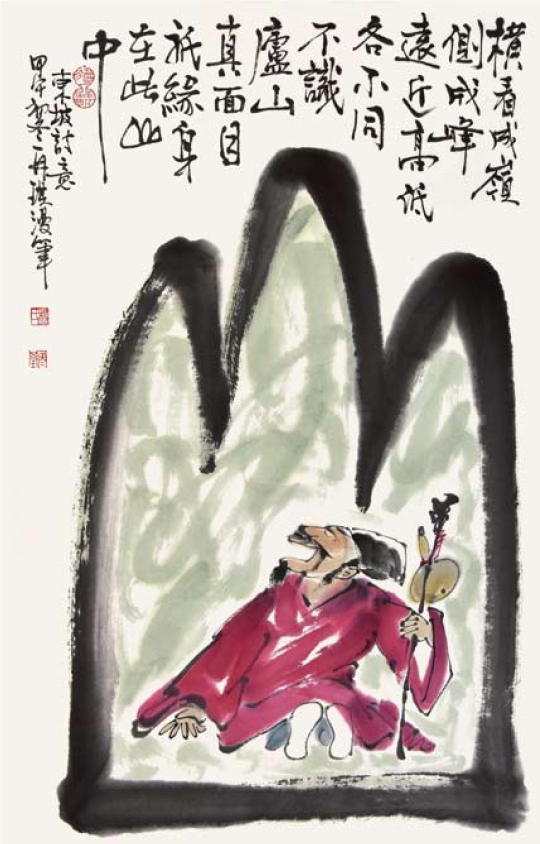 橫看成嶺
側成峰
遠近高低
各不同
不識
廬山
真面目
祇緣身
在此山
中
東坡詩意
甲午 漫筆